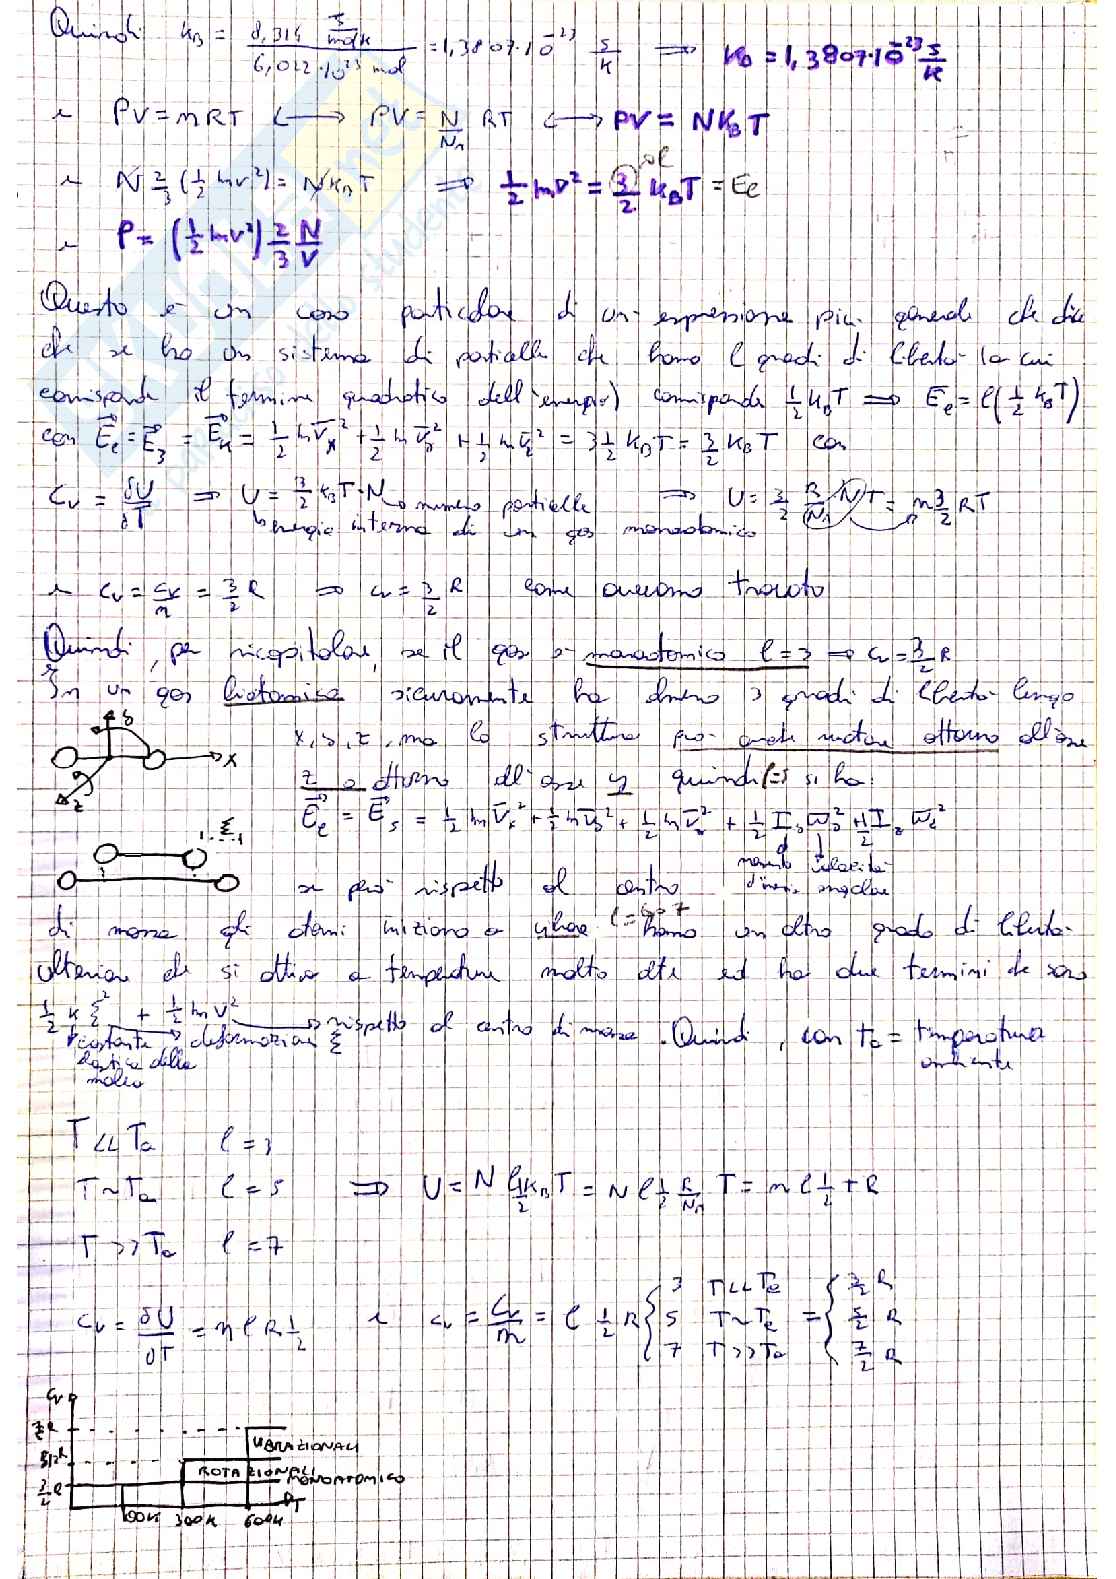 Quindi K_B = 8,314 J/mol K / 6,022·10^23 mol = 1,3807·10^-23 J/K ⟹ K_B = 1,3807·10^-23 J/K
e PV = nRT ⟷ PV = N/N_A RT ⟷ PV = N K_B T
e N 2/3 (1/2 m v²) = N K_B T ⟹ 1/2 m v² = 3/2 K_B T = E_l
e P = (1/2 m v²) 2/3 N/V
Questo è un caso particolare di un espressione più generale che dice
che se ho un sistema di particelle che hanno l gradi di libertà (a cui
corrisponde il termine quadratico dell'energia) corrisponde 1/2 K_B T ⟹ E_l = l(1/2 K_B T)
con E_l = E_3 = E_K = 1/2 m v_x² + 1/2 m v_y² + 1/2 m v_z² = 3 1/2 K_B T = 3/2 K_B T con
C_V = δU/δT ⟹ U = 3/2 K_B T · N numero particelle ⟹ U = 3/2 R/N_A N T = n 3/2 RT
energia interna di un gas monoatomico
e c_v = C_V/n = 3/2 R ⟹ c_v = 3/2 R come avevamo trovato
Quindi, per ricapitolare, se il gas è monoatomico l = 3 ⟹ c_v = 3/2 R
In un gas biatomico sicuramente ha almeno 3 gradi di libertà lungo
x, y, z, ma la struttura può anche ruotare attorno all'asse
z o attorno all'asse y quindi l=5 si ha:
x
z
E_l = E_5 = 1/2 m v_x² + 1/2 m v_y² + 1/2 m v_z² + 1/2 I_y ω_y² + 1/2 I_z ω_z²
momento d'inerzia velocità angolare
ξ
se però rispetto al centro
di massa gli atomi iniziano a vibrare l = 6 o 7 hanno un altro grado di libertà
ulteriore che si attiva a temperature molto alte ed ha due termini che sono
1/2 k ξ² + 1/2 m v² rispetto al centro di massa. Quindi, con T_a = temperatura ambiente
costante elastica della molla
deformazioni ξ
T << T_a l = 3
T ~ T_a l = 5 ⟹ U = N l 1/2 K_B T = N l 1/2 R/N_A T = n l 1/2 T R
T >> T_a l = 7
C_V = δU/δT = n l R 1/2 e c_v = C_V/n = l 1/2 R { 3 T << T_a = { 3/2 R
5 T ~ T_a 5/2 R
7 T >> T_a 7/2 R
C_V
7/2 R
VIBRAZIONALI
5/2 R
ROTAZIONALI
MONOATOMICO
3/2 R
T
100K 300K 600K